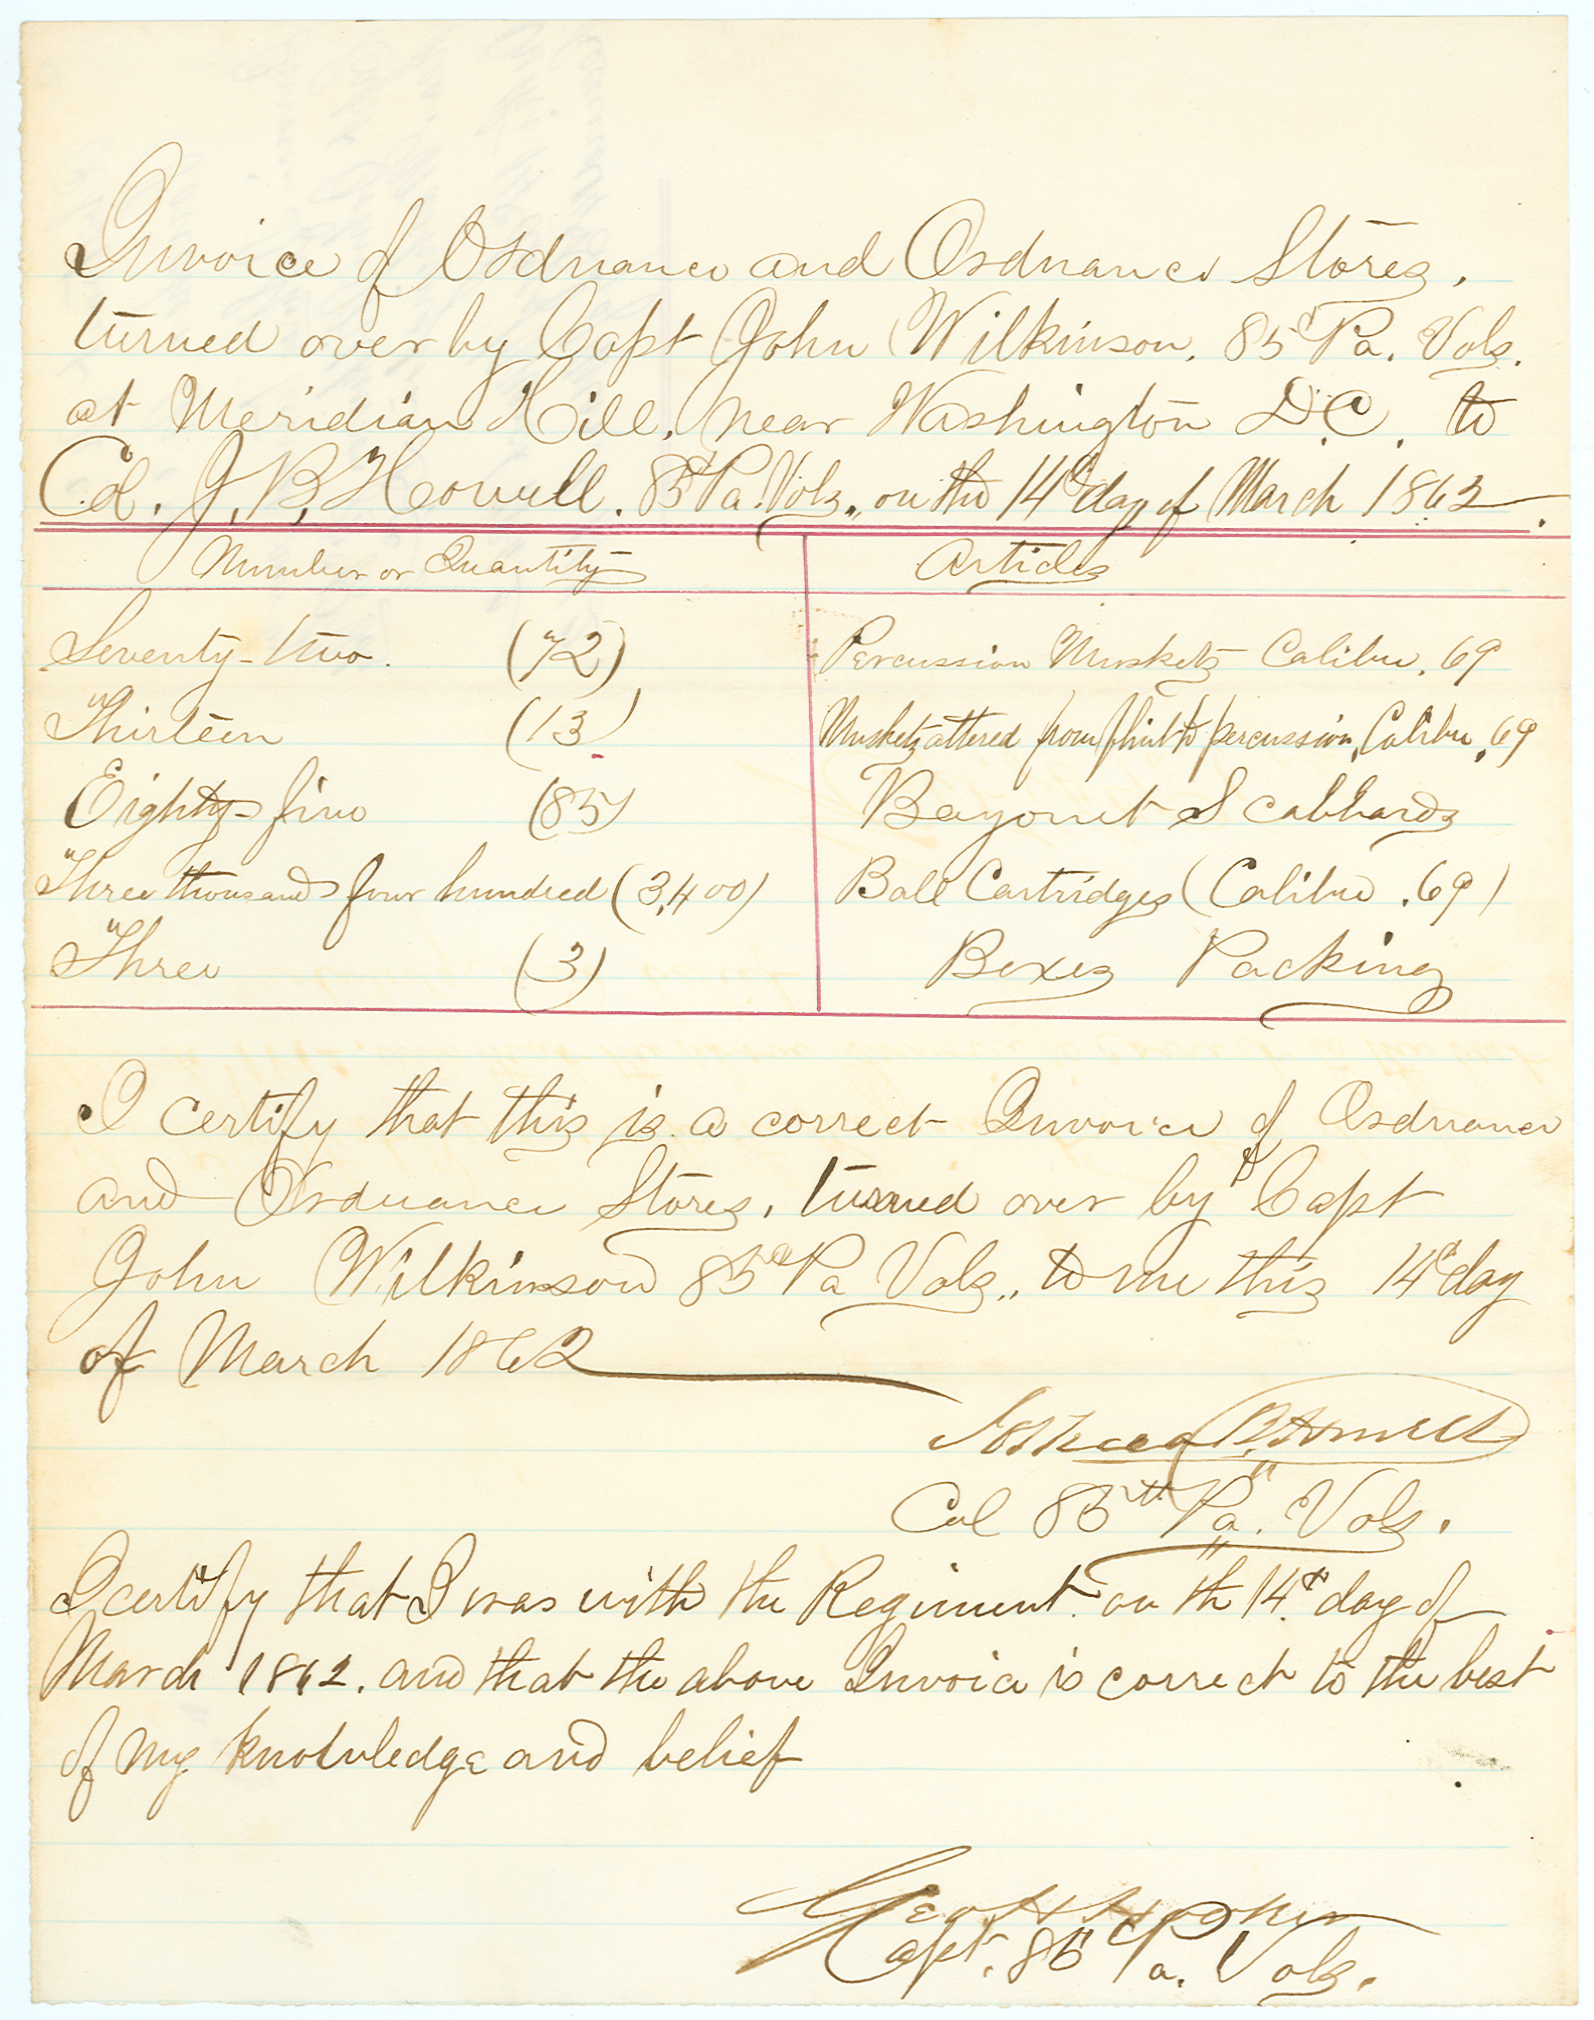 Invoice of Ordnance and Ordnance Stores,
turned over by Capt John Wilkinson, 85th Pa. Vols.
at Meridian Hill, near Washington D.C. to
Col. J. B. Howell. 85th Pa. Vols., on the 14th day of March 1862.
Number or Quantity Articles
Seventy-two. (72) Percussion Muskets Calibre .69
Thirteen (13) Muskets altered from flint to percussion, Calibre .69
Eighty-five (85) Bayonet Scabbards
Three thousand four hundred (3,400) Ball Cartridges (Calibre .69)
Three (3) Boxes Packing
I certify that this is a correct Invoice of Ordnance
and Ordnance Stores, turned over by Capt
John Wilkinson 85th Pa Vols., to me this 14th day
of March 1862
Joshua B. Howell
Col 85th Pa. Vols.
I certify that I was with the Regiment on the 14th day of
March 1862. and that the above Invoice is correct to the best
of my knowledge and belief
Geo H Hooker
Capt. 85th Pa. Vols.